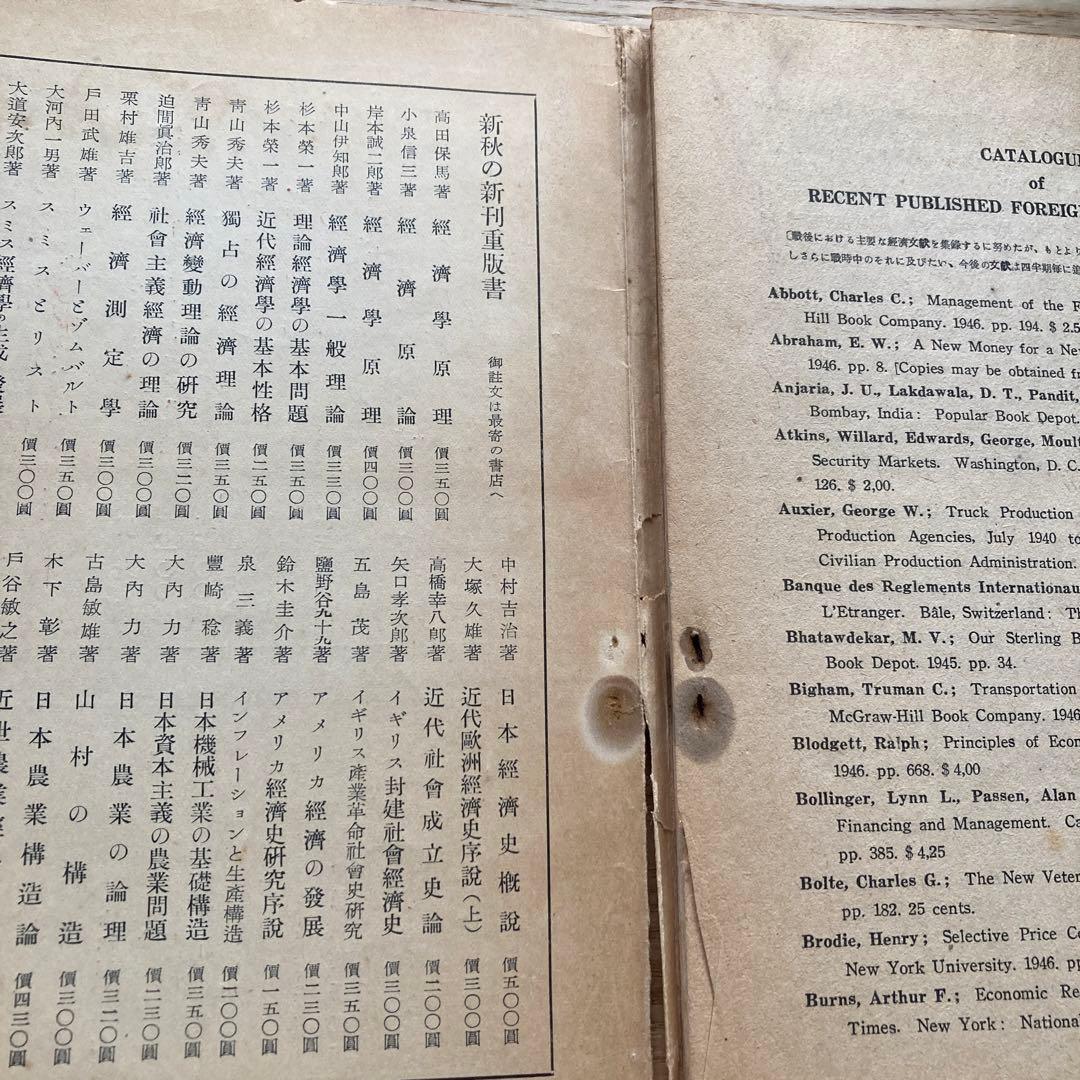 新秋の新刊重版書
御註文は最寄の書店へ
高田保馬著 經濟學原理 價三五〇圓
小泉信三著 經濟原論 價三〇〇圓
岸本誠二郎著 經濟學原理 價四〇〇圓
中山伊知郎著 經濟學一般理論 價三三〇圓
杉本榮一著 理論經濟學の基本問題 價三五〇圓
杉本榮一著 近代經濟學の基本性格 價二五〇圓
靑山秀夫著 獨占の經濟理論 價三五〇圓
靑山秀夫著 經濟變動理論の硏究 價三二〇圓
迫間眞治郎著 社會主義經濟の理論 價三〇〇圓
栗村雄吉著 經濟測定學 價三〇〇圓
戸田武雄著 ウェーバーとゾムバルト 價三五〇圓
大河內一男著 スミスとリスト 價三〇〇圓
大道安次郞著 スミス經濟學の生成と發展
中村吉治著 日本經濟史槪說 價五〇〇圓
大塚久雄著 近代歐洲經濟史序說(上) 價三〇〇圓
高橋幸八郎著 近代社會成立史論 價二〇〇圓
矢口孝次郎著 イギリス封建社會經濟史 價三〇〇圓
五島茂著 イギリス產業革命社會史硏究 價三五〇圓
鹽野谷九十九著 アメリカ經濟の發展 價二三〇圓
鈴木圭介著 アメリカ經濟史硏究序說 價一五〇圓
泉三義著 インフレーションと生產構造 價二〇〇圓
豐崎稔著 日本機械工業の基礎構造 價三五〇圓
大內力著 日本資本主義の農業問題 價二三〇圓
大內力著 日本農業の論理 價三二〇圓
古島敏雄著 山村の構造 價三〇〇圓
木下彰著 日本農業構造論 價四三〇圓
戸谷敏之著 近世農業
CATALOGUE
of
RECENT PUBLISHED FOREIG
〔戰後における主要な經濟文獻を集錄するに努めたが、もとより
しさらに戰時中のそれに及びたい、今後の文獻は四半期每に追
Abbott, Charles C.; Management of the F
Hill Book Company. 1946. pp. 194. $ 2.5
Abraham, E. W.; A New Money for a Ne
1946. pp. 8. [Copies may be obtained fr
Anjaria, J. U., Lakdawala, D. T., Pandit,
Bombay, India: Popular Book Depot.
Atkins, Willard, Edwards, George, Moult
Security Markets. Washington, D. C.
126. $ 2,00.
Auxier, George W.; Truck Production
Production Agencies, July 1940 to
Civilian Production Administration.
Banque des Reglements Internationau
L'Etranger. Bâle, Switzerland: Th
Bhatawdekar, M. V.; Our Sterling B
Book Depot. 1945. pp. 34.
Bigham, Truman C.; Transportation
McGraw-Hill Book Company. 1946
Blodgett, Ralph; Principles of Econ
1946. pp. 668. $ 4,00
Bollinger, Lynn L., Passen, Alan
Financing and Management. Ca
pp. 385. $ 4,25
Bolte, Charles G.; The New Veter
pp. 182. 25 cents.
Brodie, Henry; Selective Price Co
New York University. 1946. pp
Burns, Arthur F.; Economic Re
Times. New York: National